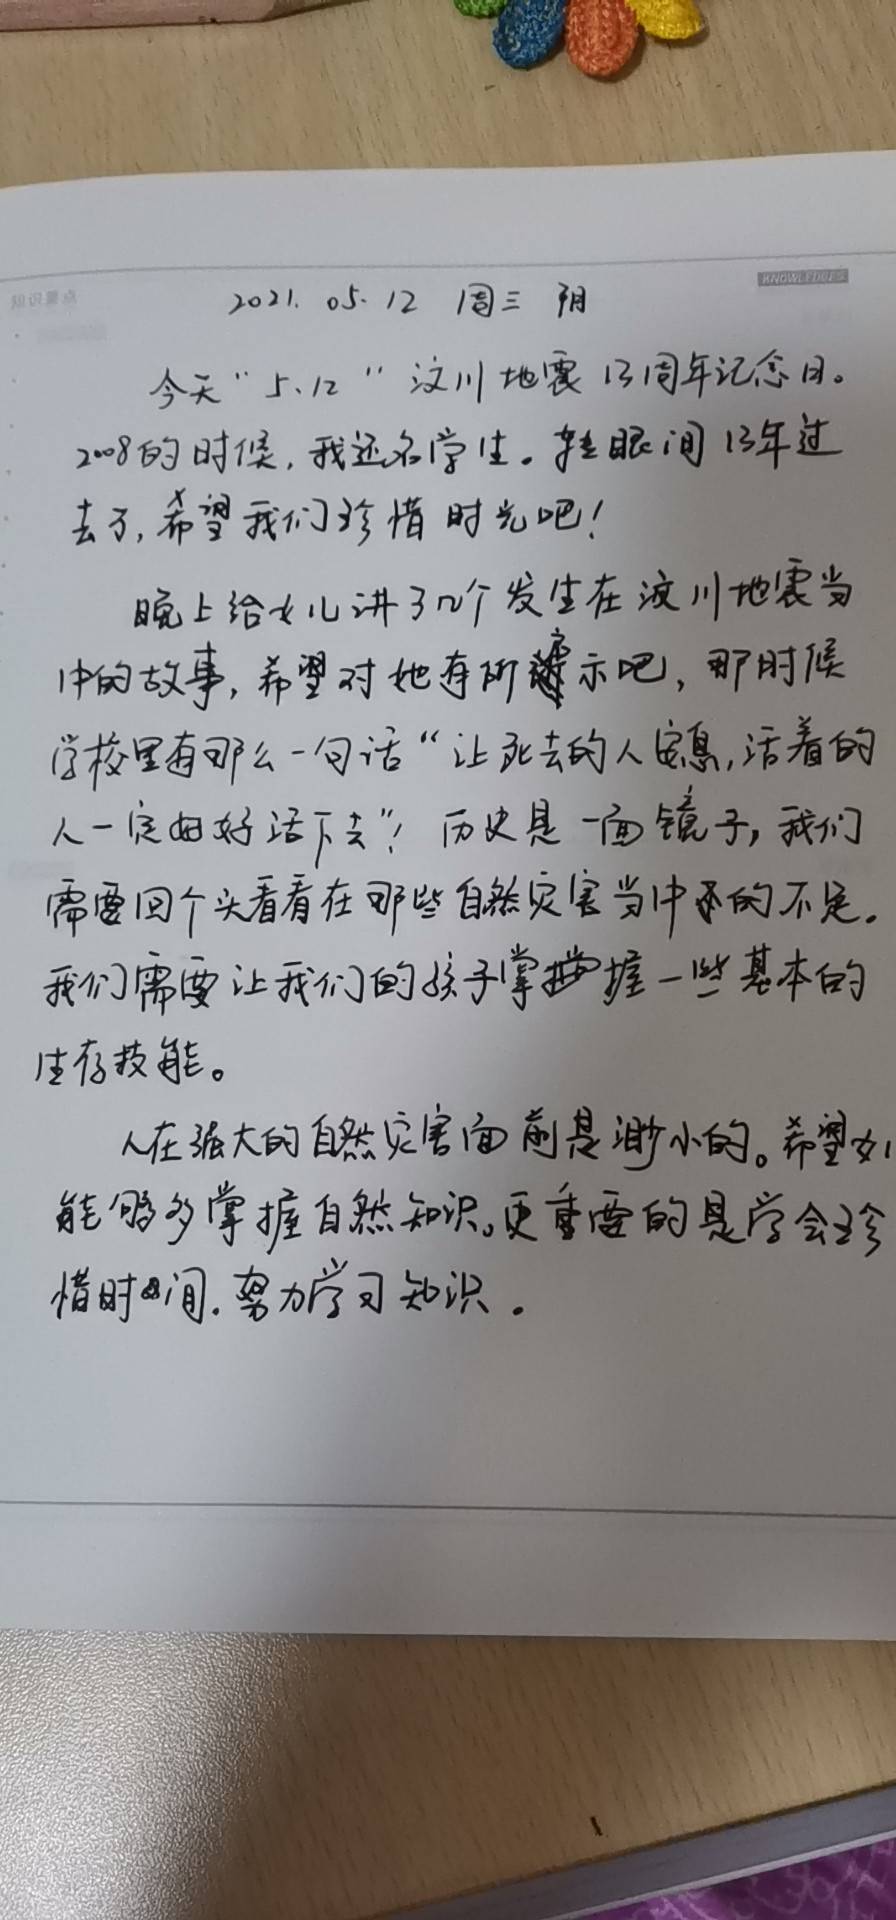 KNOWLEDGES
2021.05.12 周三 阴
今天“5.12”汶川地震13周年记念日。
2008的时候,我还是学生。转眼间13年过
去了,希望我们珍惜时光吧!
晚上给女儿讲了几个发生在汶川地震当
中的故事,希望对她有所示吧,那时候
学校里有那么一句话“让死去的人安息,活着的
人一定要好活下去”!历史是一面镜子,我们
需要回个头看看在那些自然灾害当中的不足。
我们需要让我们的孩子掌握一些基本的
生存技能。
人在强大的自然灾害面前是渺小的。希望
能够多掌握自然知识。更重要的是学会珍
惜时间.努力学习知识.